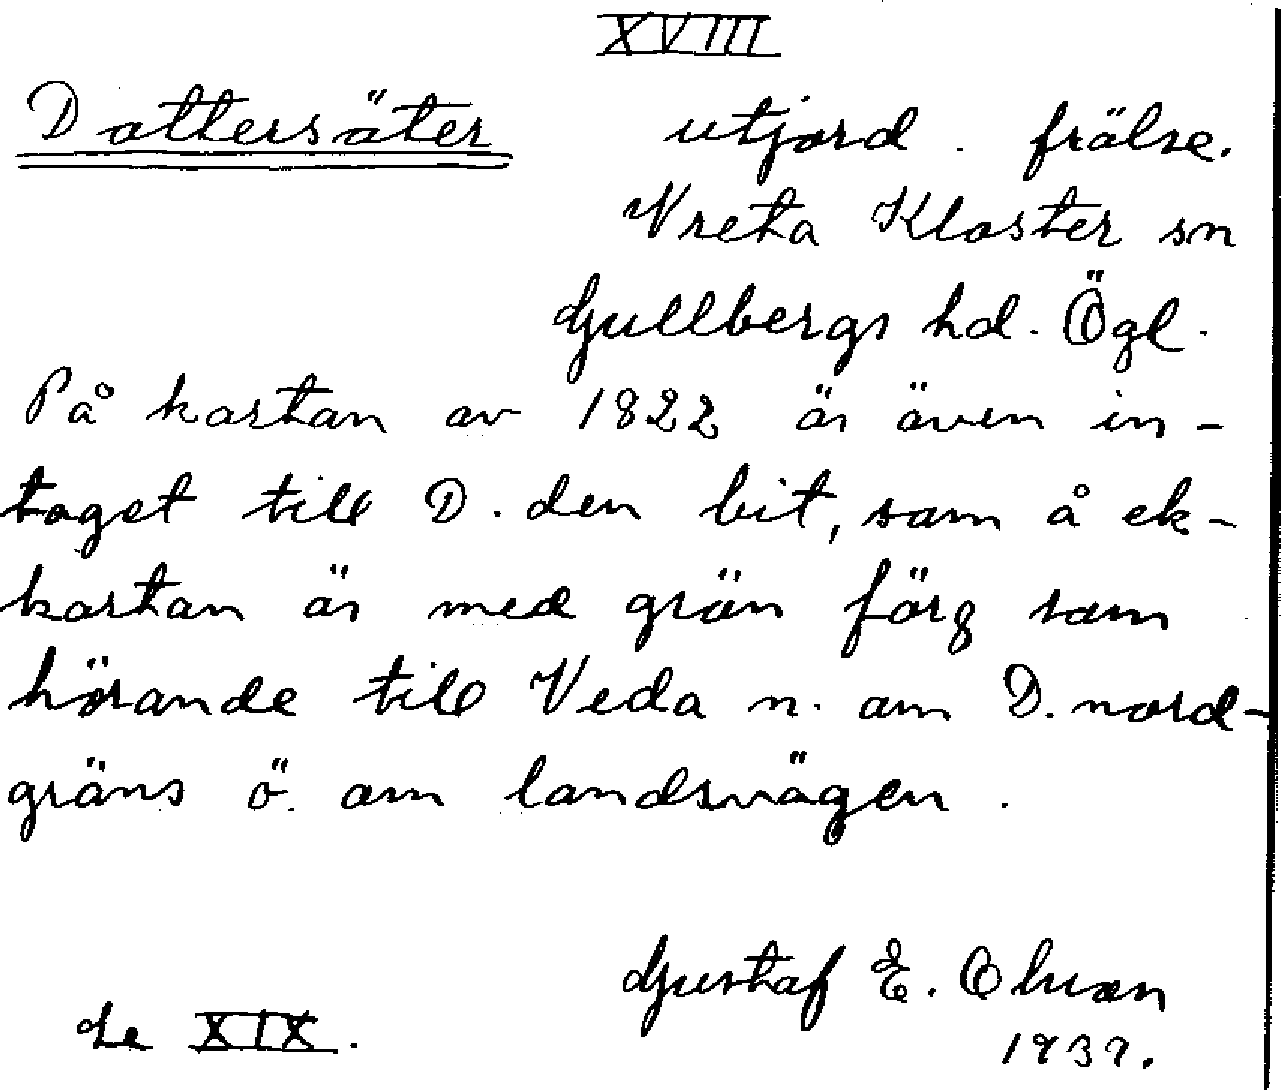 XVIII
Dottersäter utjord . frälse.
Vreta Kloster sn
Gullbergs hd. Ögl.
På kartan av 1822 är även in-
taget till D. den bit, som å ek-
kartan är med grön färg som
hörande till Veda n. om D. nord-
gräns ö. om landsvägen .
Gustaf E. Olsson
de XIX. 1937.